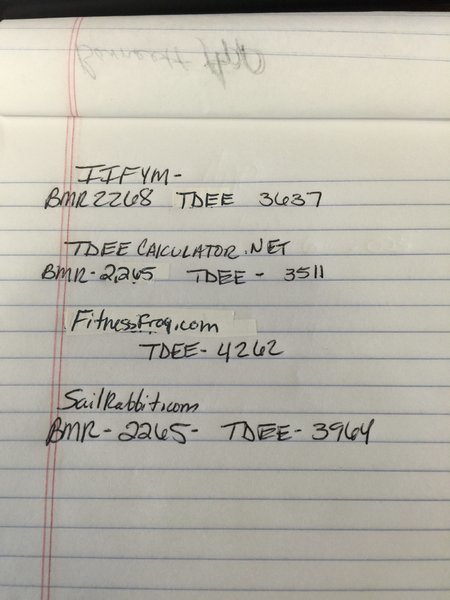 IIFYM-
BMR 2268 TDEE 3637
TDEE CALCULATOR.NET
BMR- 2,265 TDEE - 3511
FitnessFrog.com
TDEE- 4262
SailRabbit.com
BMR- 2265- TDEE- 3964